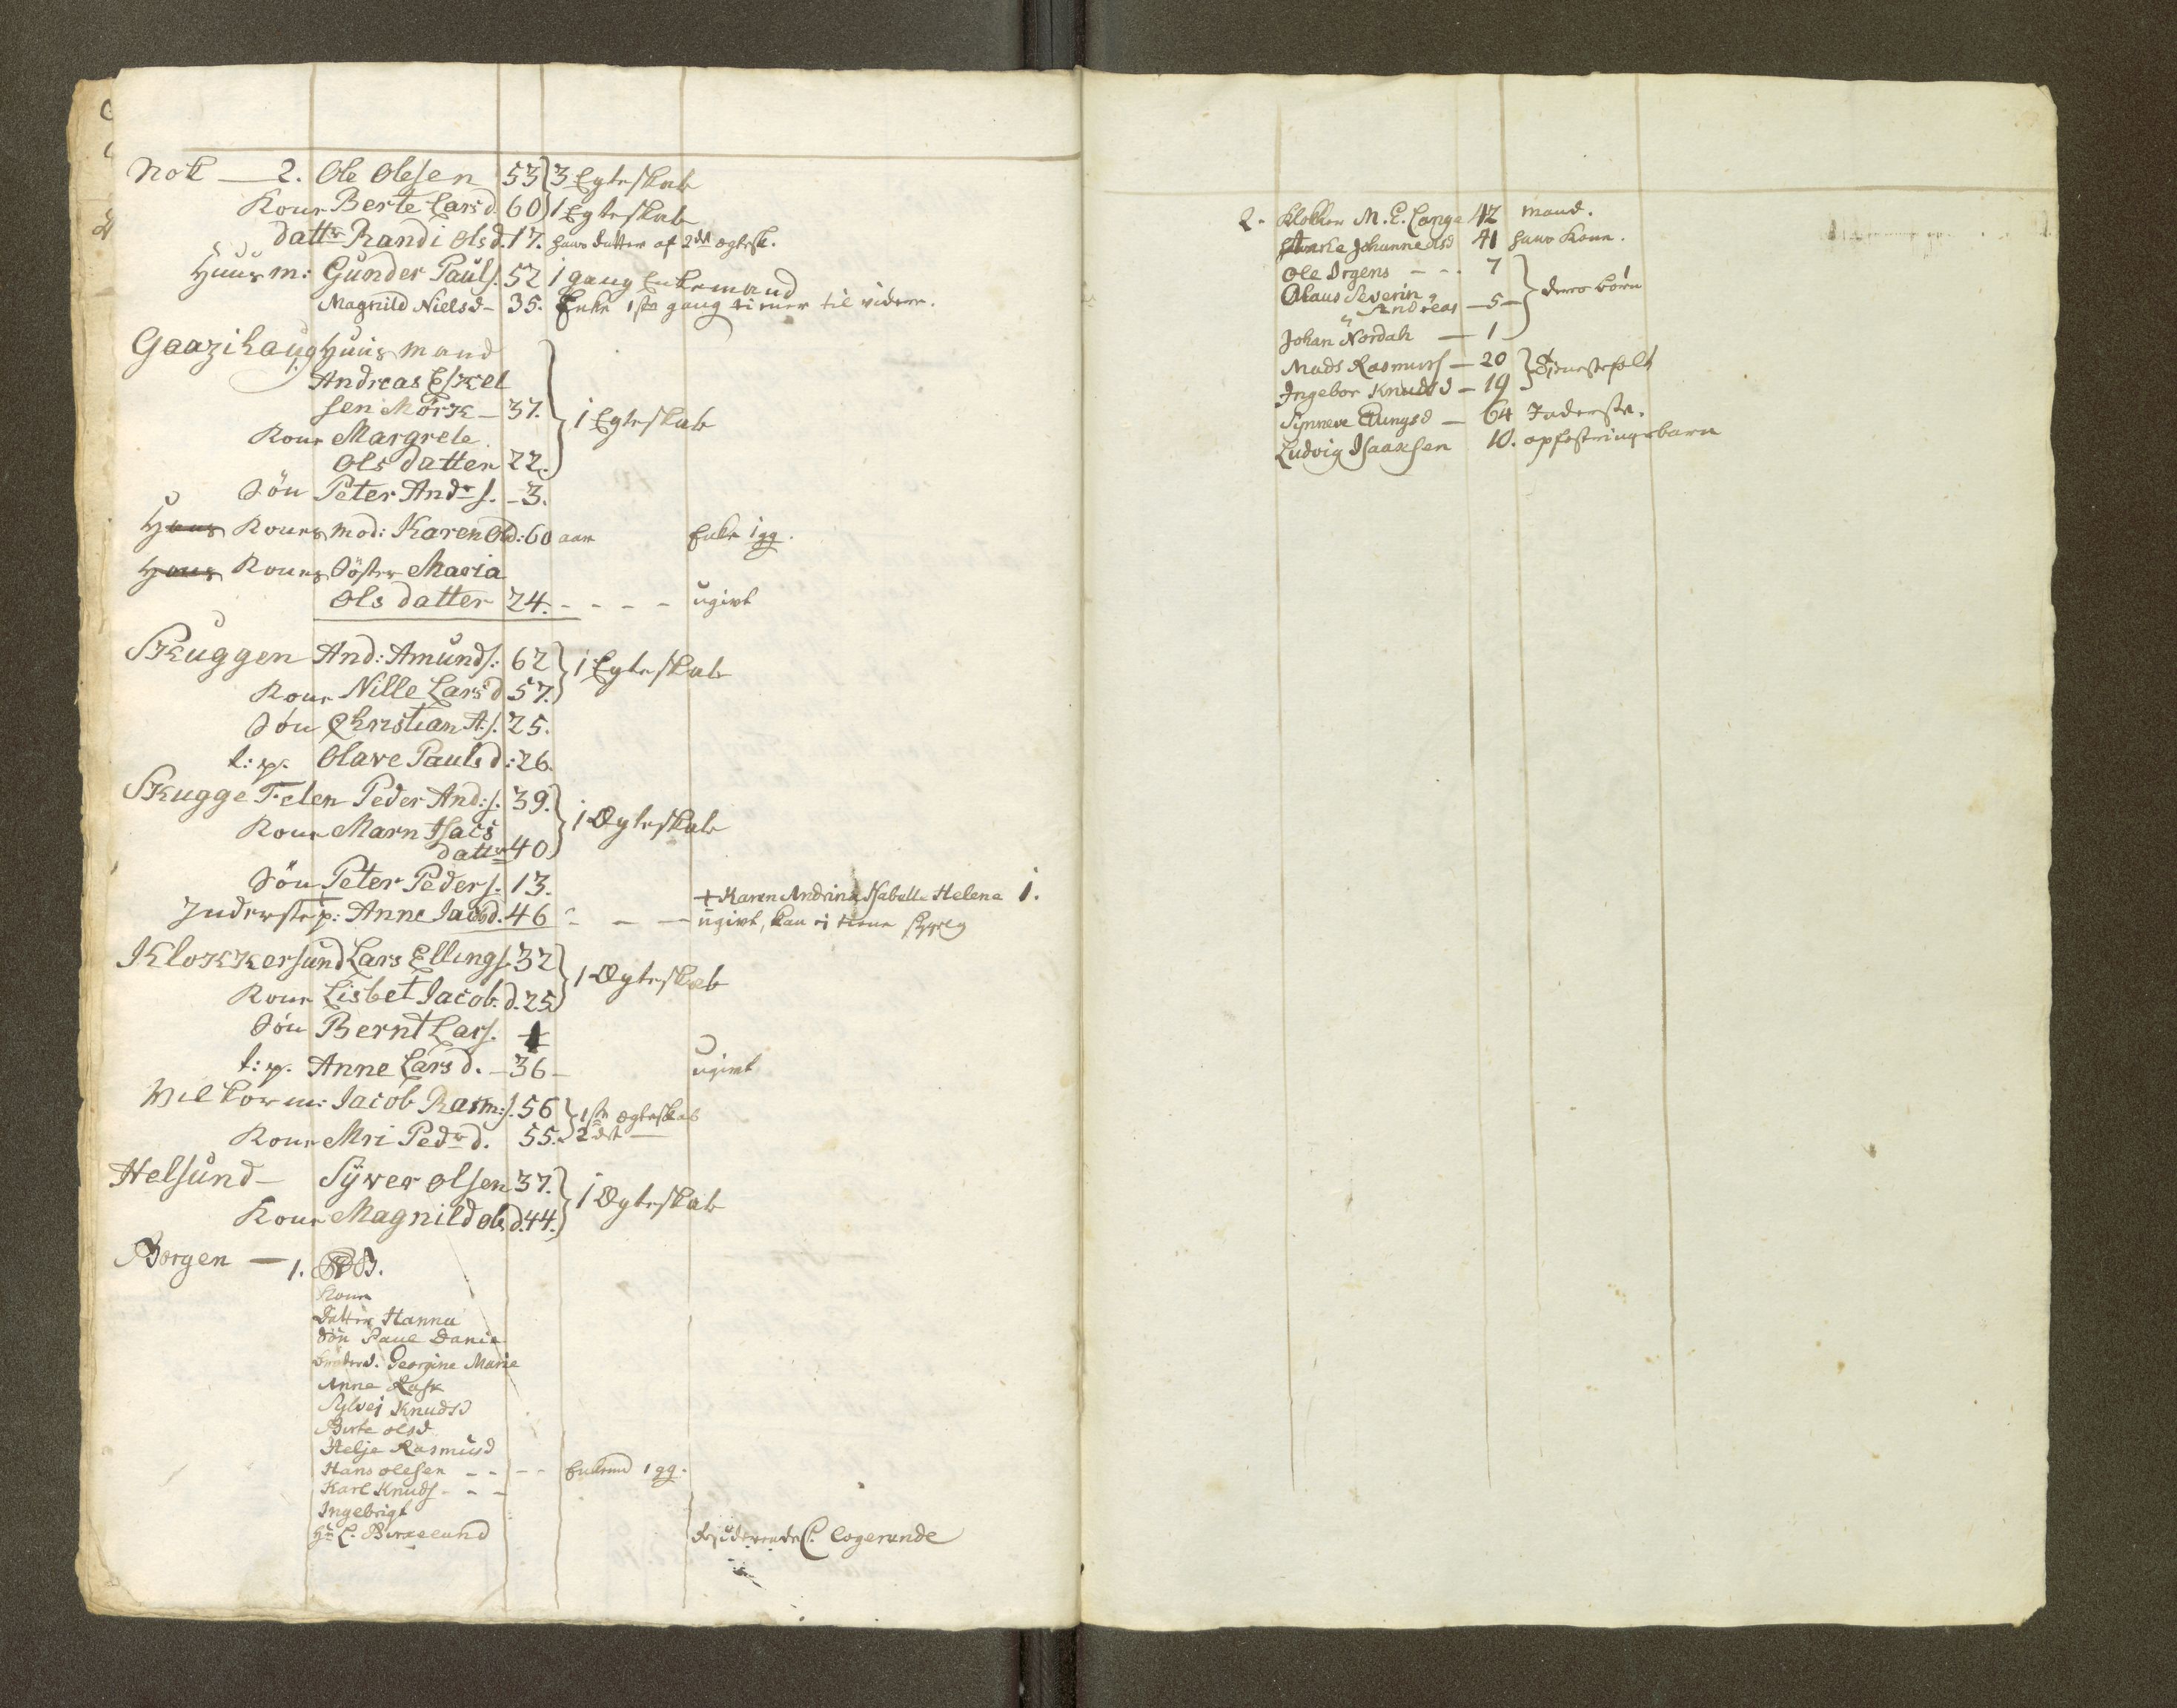 Nott — 2. Ole Olesen 53 3 Egteskab
Kone Berte Larsd. 60 1 Egteskab
dattr Randi Olsd. 17. hans datter af 2det ægtesk.
Huusm: Gunder Pauls. 52 1 gang Enkemand
Magnild Nielsd - 35. Enke 1ste gang
Gaazihaug Huusmand
Andreas Eskel
sen Mörk - 37. 1 Egteskab
Kone Margrete
Ols datter 22.
Sön Peter Andr s. - 3.
Hans Kones mod: Karen Old: 60 aar Enke 1 gg.
Hans Kones Söster Maria
Ols datter 24. - - - - ugivt
Skuggen And: Amunds: 62 1 Egteskab
Kone Nille Larsd 57.
Sön Christian A. s. 25.
t: p. Olave Paulsd: 26.
Skugge Felen Peder And: s. 39. 1 Ægteskab
Kone Marn Isacs
dattr 40.
Sön Peter Peders. 13.
+ Karen Andrina Isabelle Helene 1.
Inderstep: Anne Jacobsd. 46 - - - ugivt, kan ej tiene
Klokkersund Lars Ellings. 32 1 Ægteskab
Kone Lisbet Jacob. d. 25
Sön Bernt Lars. 1
t: p. Anne Larsd. - 36 - ugivt
Vilkorm: Jacob Rasm: s. 56 1ste ægteskab
Kone Mri Pedr d. 55. 2det —
Helsund - Sÿver olsen 37. 1 Ægteskab
Kone Magnild ols d. 44.
Borgen — 1.
Kone
Datter Hanna
Sön Paul Danie
Broderd. Georgine Marie
Anne Rask
Sylvej Knudsd
Berte olsd
Helje Rasmusd
Hans olesen - - - - Enkemd 1 gg.
Karl Knuds - - -
Ingebrigt
Hr L. Birkelund logerende
2. Klokker M. E. Lange 42 mand.
Johannesd 41 hans Kone.
Ole Irgens - - - 7
Olaus Severin deres börn
" Andreas - 5 -
Johan Nordah — 1
Mads Rasmuss — 20 Tienestefolk
Ingebor Knudsd - 19
Synneve Ellingsd — 64 Inderste.
Ludvig Isaaksen 10. opfostringsbarn